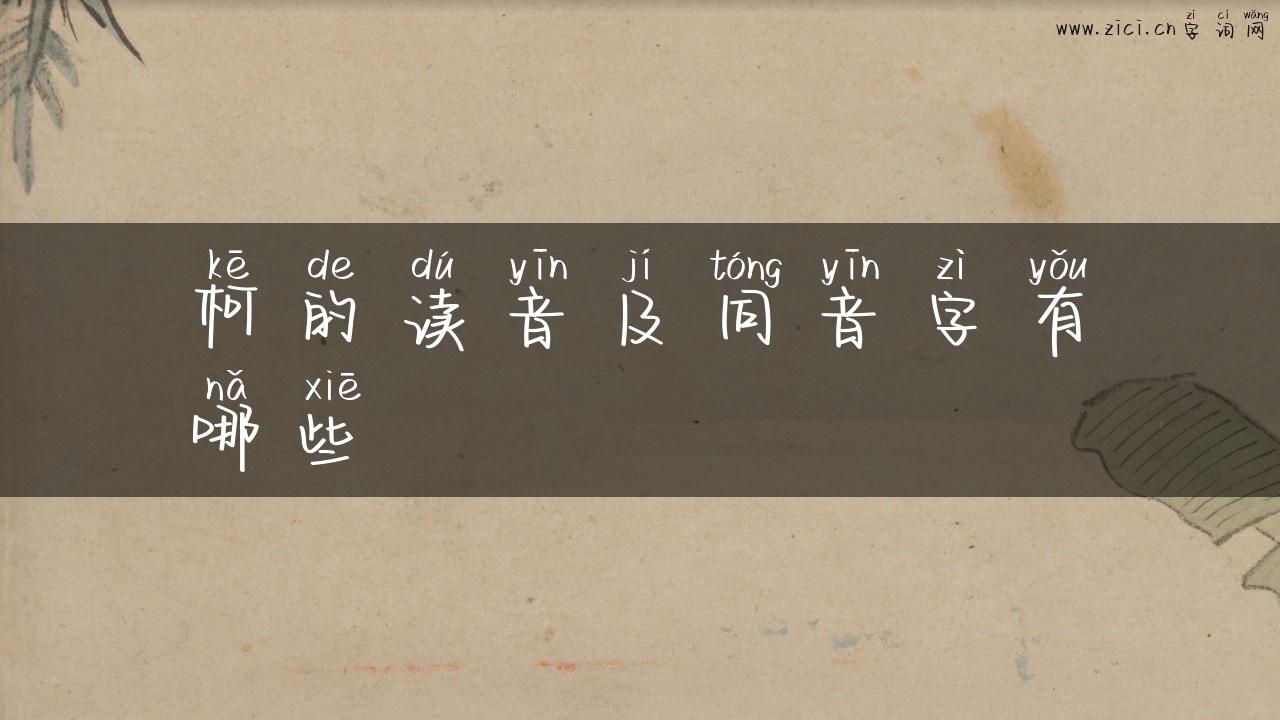 zì cí wǎng
www.zici.cn 字词网
kē de dú yīn jí tóng yīn zì yǒu
柯的读音及同音字有
nǎ xiē
哪些